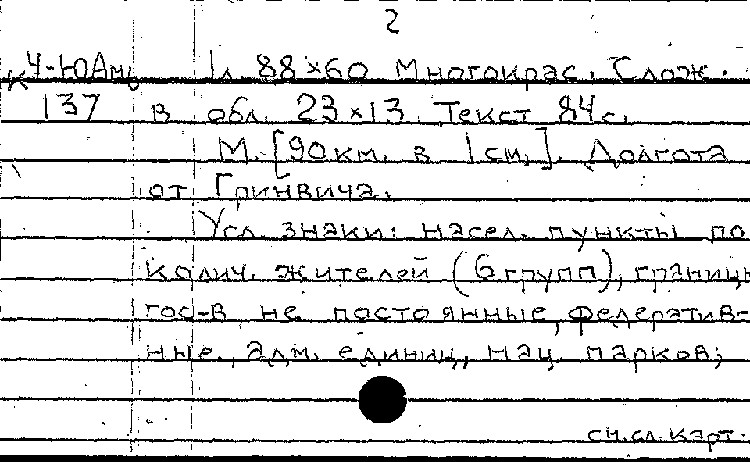 2
К4-ЮАм 1л. 88×60 Многокрас. Слож.
137 в обл. 23×13. Текст 84 с.
М. [90 км. в 1 см.]. Долгота
от Гринвича.
Усл. знаки: насел. пункты по
колич. жителей (6 групп), границы
гос-в не постоянные, федератив-
ные, адм. единиц, нац. парков;
см. сл. карт.